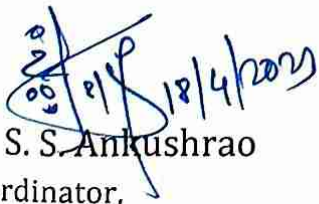 18/4/2021
S. S. Ankushrao
rdinator,